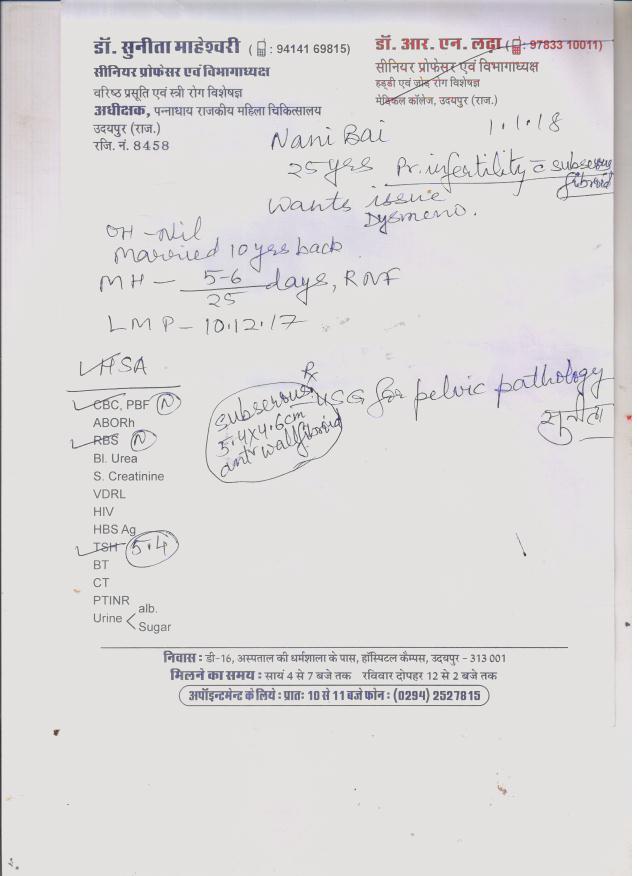 डॉ. सुनीता माहेश्वरी ( : 94141 69815)
सीनियर प्रोफेसर एवं विभागाध्यक्ष
वरिष्ठ प्रसूति एवं स्त्री रोग विशेषज्ञ
अधीक्षक, पन्नाधाय राजकीय महिला चिकित्सालय
उदयपुर (राज.)
रजि. नं. 8458
डॉ. आर. एन. लढ़ा ( : 97833 10011)
सीनियर प्रोफेसर एवं विभागाध्यक्ष
हड्डी एवं जोड़ रोग विशेषज्ञ
मेडिकल कॉलेज, उदयपुर (राज.)
Nani Bai 1.1.18
25 yrs Pr. infertility c̄ subserous
fibroid
Wants issue
Dysmeno.
OH - Nil
Married 10 yrs back
MH - 5-6/25 days, RNF
LMP - 10.12.17
HSA
CBC, PBF (N)
ABORh
RBS (N)
Bl. Urea
S. Creatinine
VDRL
HIV
HBS Ag
TSH 5.4
BT
CT
PTINR
Urine < alb.
Sugar
Rx
USG for pelvic pathology
सुनीता
subserous
5.4x4.6cm
antr wall fibroid
निवास : डी-16, अस्पताल की धर्मशाला के पास, हॉस्पिटल कैम्पस, उदयपुर - 313 001
मिलने का समय : सायं 4 से 7 बजे तक रविवार दोपहर 12 से 2 बजे तक
अपॉइन्टमेन्ट के लिये : प्रातः 10 से 11 बजे फोन : (0294) 2527815